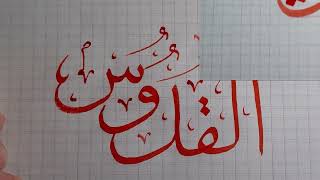 القدوس